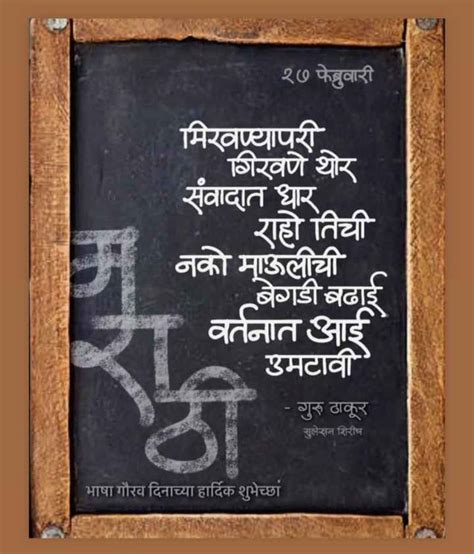 २७ फेब्रुवारी
मिरवण्यापरी
गिरवणे थोर
संवादात धार
राहो तिची
नको माऊलीची
बेगडी बढाई
वर्तनात आई
उमटावी
- गुरु ठाकूर
सुलेखन शिरीष
मराठी
भाषा गौरव दिनाच्या हार्दिक शुभेच्छा